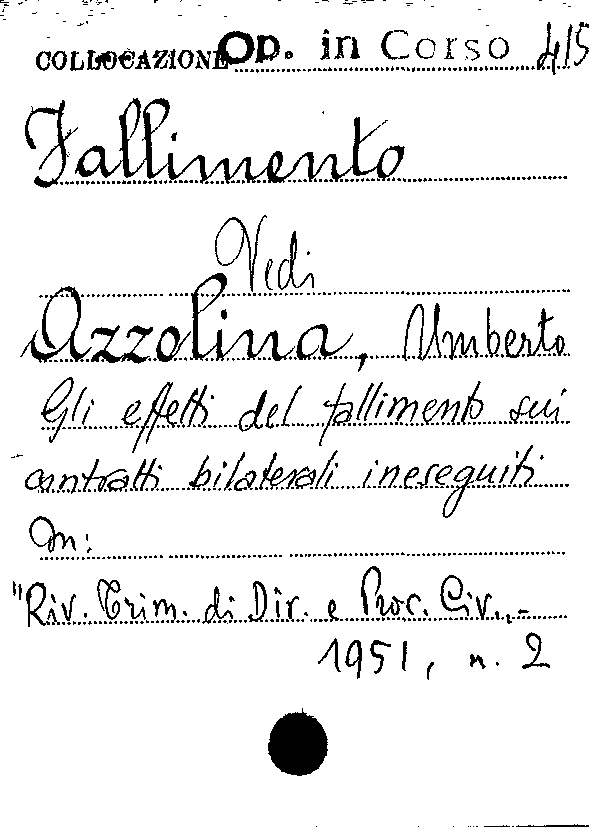 COLLOCAZIONE Op. in Corso 415
Fallimento
Vedi
Azzolina, Umberto
Gli effetti del fallimento sui
contratti bilaterali ineseguiti
In:
"Riv. Trim. di Dir. e Proc. Civ.,-
1951, n. 2